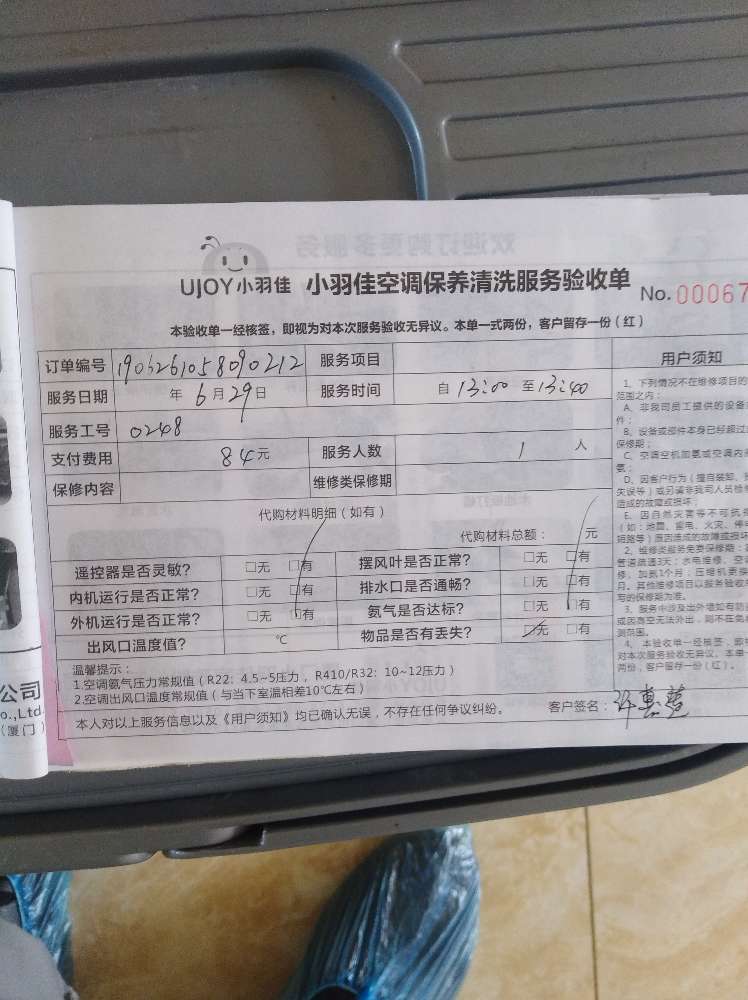 UJOY小羽佳 小羽佳空调保养清洗服务验收单 No.00067
本验收单一经核签，即视为对本次服务验收无异议。本单一式两份，客户留存一份（红）
订单编号 1906261058090212 服务项目
服务日期 年 6月29日 服务时间 自 13:00 至 13:40
服务工号 0248
支付费用 84元 服务人数 1 人
保修内容 维修类保修期
代购材料明细（如有）
代购材料总额： 元
遥控器是否灵敏？ □无 □有 摆风叶是否正常？ □无 □有
内机运行是否正常？ □无 □有 排水口是否通畅？ □无 □有
外机运行是否正常？ □无 □有 氨气是否达标？ □无 □有
出风口温度值？ ℃ 物品是否有丢失？ □无 □有
温馨提示：
1.空调氨气压力常规值（R22：4.5~5压力，R410/R32：10~12压力）
2.空调出风口温度常规值（与当下室温相差10℃左右）
本人对以上服务信息以及《用户须知》均已确认无误，不存在任何争议纠纷。 客户签名：许惠莲
用户须知
1、下列情况不在维修项目的
范围之内：
A、非我司员工提供的设备
件；
B、设备或部件本身已经超过
保修期；
C、空调空机加氨或空调内
氨；
D、因客户行为（擅自装卸、
失误等）或另请非我司人员检修
造成的故障或损坏；
E、因自然灾害等不可抗
（如：地震、雷电、火灾、停
短路等）原因造成的故障或损坏
2、维修类服务免费保修期：
管道疏通3天；水电维修、空
修、加氨1个月；压缩机更换
月。其他维修项目以服务验收
写的保修期为准。
3、服务中涉及出外墙如有防
或因高空无法外出，则不在免
测范围。
4、本验收单一经核签，即
对本次服务验收无异议，本单一
两份，客户留存一份（红）。
公司
o.,Ltd
（厦门）